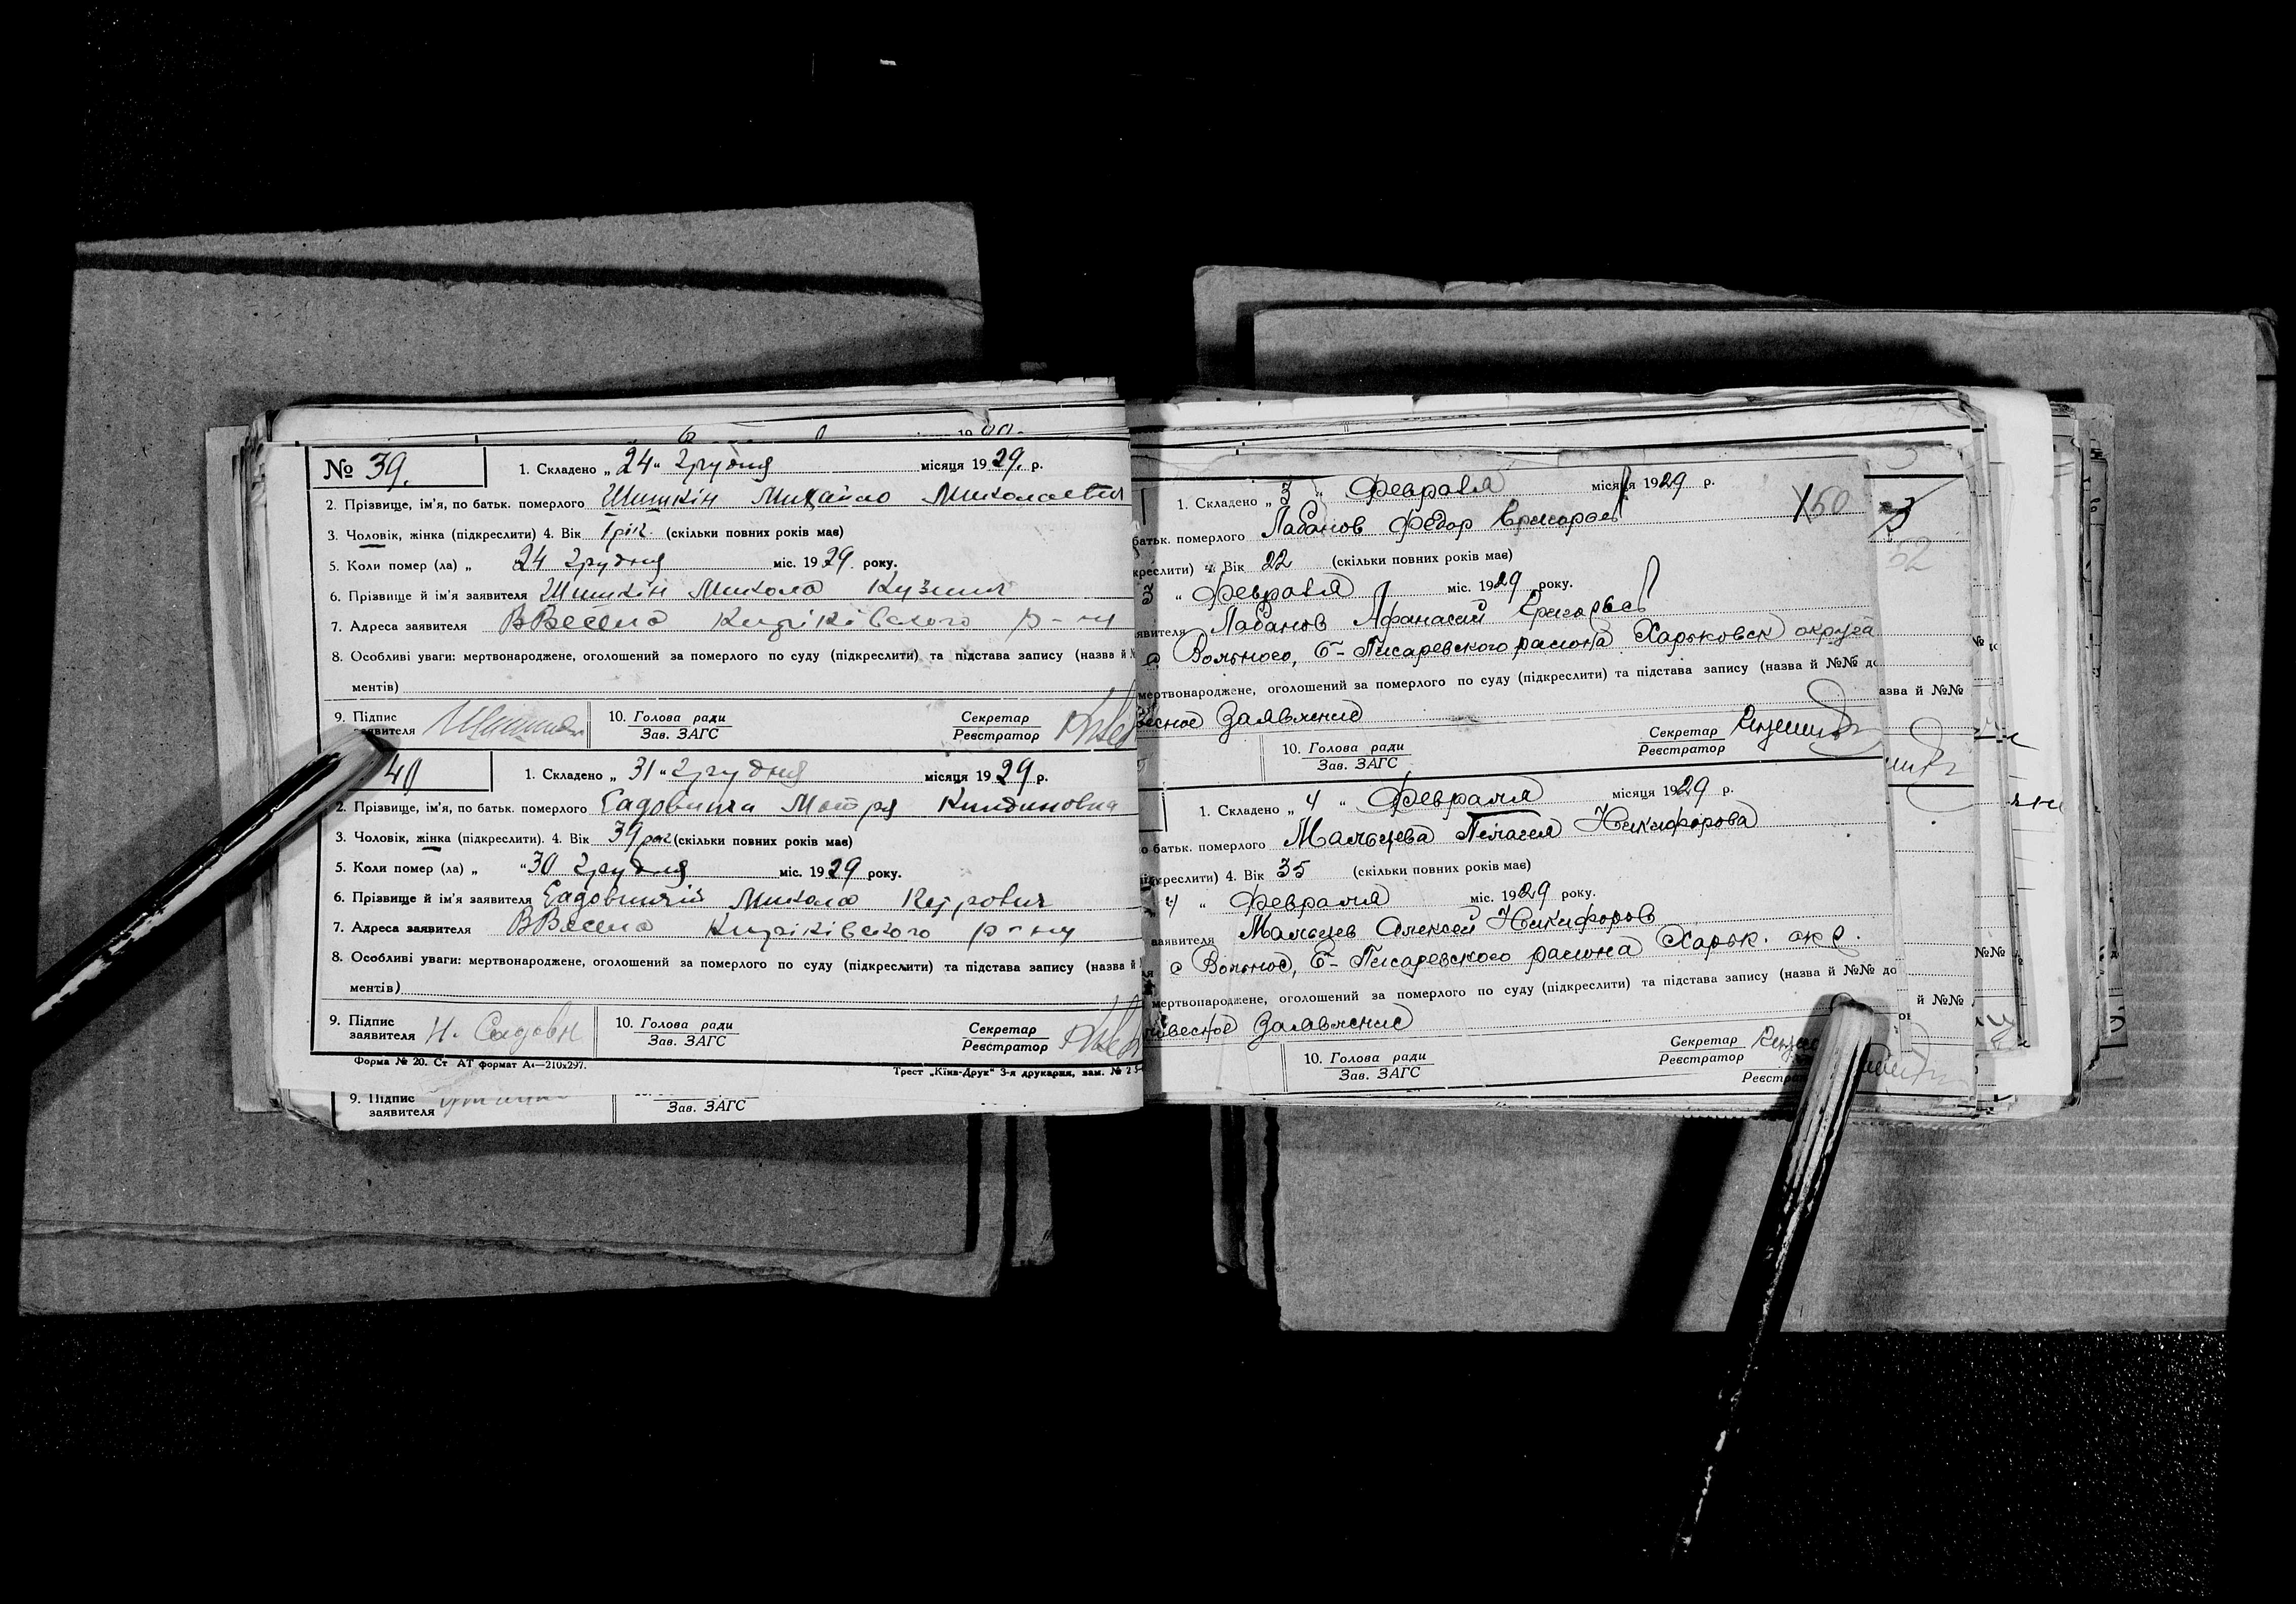 № 39.
1. Складено „ 24 “ Грудня місяця 1929. р.
2. Прізвище, ім'я, по батьк. померлого Шишкін Михайло Миколаевич
3. Чоловік, жінка (підкреслити) 4. Вік 1 рік. (скільки повних років має)
5. Коли помер (ла) „ 24 Грудня міс. 1929. року.
6. Прізвище й ім'я заявителя Шишкін Микола Кузмич
7. Адреса заявителя ВВесела Кириківського р-ну
8. Особливі уваги: мертвонароджене, оголошений за померлого по суду (підкреслити) та підстава запису (назва й
ментів)
9. Підпис
заявителя
10. Голова ради
Зав. ЗАГС
Секретар
Реєстратор
40
1. Складено „ 31 “ Грудня місяця 1929 р.
2. Прізвище, ім'я, по батьк. померлого Мотря
3. Чоловік, жінка (підкреслити). 4. Вік 39 рок (скільки повних років має)
5. Коли помер (ла) „ “ 30 Грудня міс. 1929 року.
6. Прізвище й ім'я заявителя Микола
7. Адреса заявителя ВВесела Кириківського р-ну
8. Особливі уваги: мертвонароджене, оголошений за померлого по суду (підкреслити) та підстава запису (назва й
ментів)
9. Підпис
заявителя
10. Голова ради
Зав. ЗАГС
Секретар
Реєстратор
Форма № 20. Ст АТ формат А4—210x297.
Трест „Київ-Друк“ 3-я друкарня, зам. №
9. Підпис
заявителя
Зав. ЗАГС
1. Складено „ 3 “ Февраля місяця 1929 р.
батьк. померлого Лабанов Федор Григорьев
150
креслити) 4. Вік 22 (скільки повних років має)
3 “ Февраля міс. 1929 року.
явителя Лабанов Афанасий Григорьев
с Вольного, Б-Писаревского района Харьковск округа
мертвонароджене, оголошений за померлого по суду (підкреслити) та підстава запису (назва й №№ до
весное Заявление
10. Голова ради
Зав. ЗАГС
Секретар
Реєстратор
52
азва й №№
1. Складено „ 4 “ Февраля місяця 1929 р.
батьк. померлого Мальцева Пелагея Никифорова
креслити) 4. Вік 35 (скільки повних років має)
4 “ Февраля міс. 1929 року.
заявителя Мальцев Алексей Никифоров
с Вольное, Б-Писаревского района Харьк. окр.
мертвонароджене, оголошений за померлого по суду (підкреслити) та підстава запису (назва й №№ до
ловесное Заявление
10. Голова ради
Зав. ЗАГС
Секретар
Реєстратор
й №№